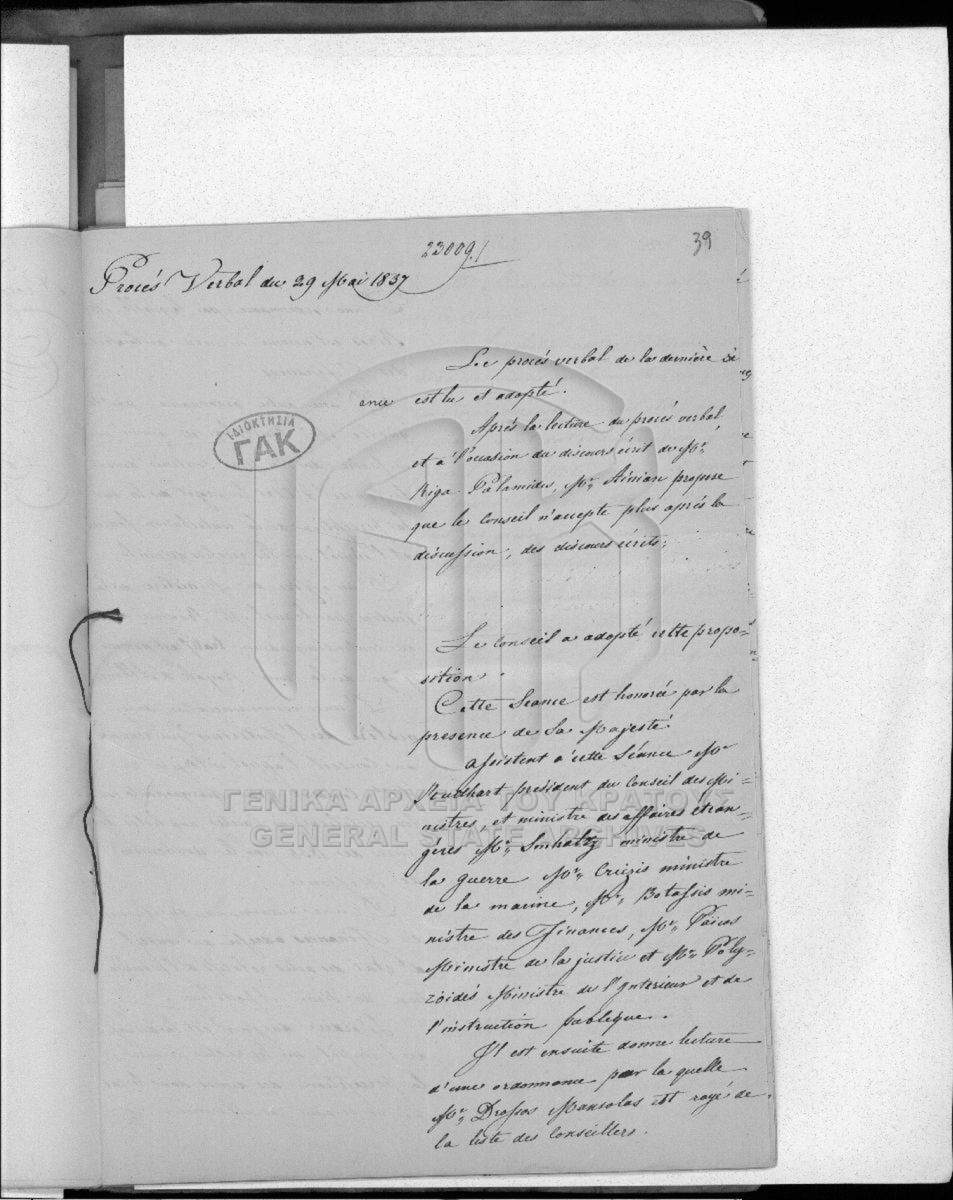 23009./
39
Procés Verbal du 29 Mai 1837
Le procés verbal de la dernière Sé
ance est lu et adopté.
Après la lecture du procés verbal,
et à l'occasion du discours écrit de Mr.
Riga Palamides, Mr. Ainian propose
que le Conseil n'accepte plus après la
discussion, des discours écrits;
Le Conseil a adopté cette propo=
sition.
Cette Séance est honorée par la
presence de Sa Majesté
assistent à cette Séance Mr
Roudhart président du Conseil des Mi=
nistres, et ministre des affaires etran
gères Mr. Smhaltz ministre de
la guerre Mr. Criézis ministre
de la marine, Mr. Botassis mi=
nistre des Finances, Mr. Paicos
Ministre de la justice et Mr. Poly=
zoidés Ministre de l'Interieur et de
l'instruction publique.
Il est ensuite donné lecture
d'une ordonnance par la quelle
Mr. Drosos Mansolas est rayé de
la liste des Conseillers.
ΙΔΙΟΚΤΗΣΙΑ
ΓΑΚ
ΓΕΝΙΚΑ ΑΡΧΕΙΑ ΤΟΥ ΚΡΑΤΟΥΣ
GENERAL STATE ARCHIVES